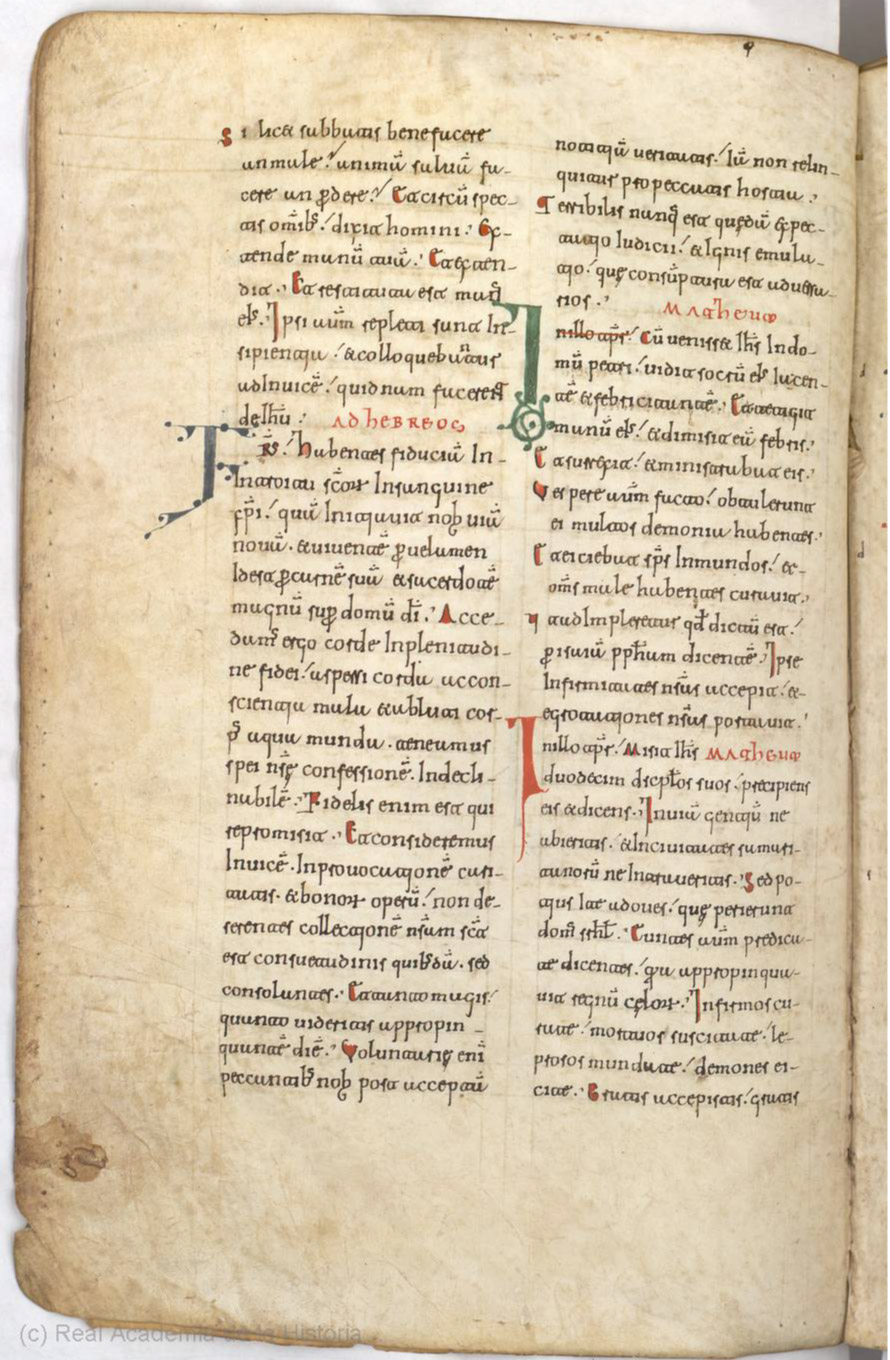 Si licet sabbatis benefacere
an male? animā saluā fa-
cere an ꝑdere? Et circūspec-
tis omīb; dixit homini: Ex-
tende manū tuā. Et exten-
dit. Et restituta est manꝰ
eiꝰ. Ipsi aūm repleti sunt In-
sipientia et colloquebantur
adInuicē quidnam facerent
de Ihū:
AD HEBREOS
Frs̄. Habentes fiduciā In-
Introitu scōrꝝ In sanguine
xp̄i quā Initiauit nobis uiā
nouā et uiuentē ꝑ uelamen
Idest ꝑ carnē suā et sacerdotē
magnū supꝑ domū dī. Acce-
damꝰ ergo corde In plenitudi-
ne fidei aspersi corda a con-
scientia mala et abluti cor-
pꝰ aqua munda teneamus
spei nsē confessionē. Indecli-
nabilē. Fidelis enim est qui
repromisit. Et consideremus
Inuicē In prouocatjonē cari-
tatis et bonorꝝ operū non de-
serentes collectjonē nsām scā
est consuetudinis quibꝰdā sed
consolantes. Et tanto magis
quanto uideritis appropin-
quantē diē. Voluntarię enī
peccantibꝰ nobis post acceptā
notitjā ueritatis. Iā non relin-
quitur pro peccatis hostia.
Terribilis nunq̄ est quędā expec-
tatjo Iudicii et Ignis emula-
tjo quę consūptura est aduersa-
rios.
MATHEUM
Inillo tp̄re. Cū uenisset Ihs̄ In do-
mū petri uidit socrū eiꝰ Iacen-
tē et febricitantē. Et tetigit
manū eiꝰ et dimisit eā febris.
Et surrexit et ministrabat eis.
Vespere aūm facto obtulerunt
ei multos demonia habentes.
Et eiciebat sps̄ Inmundos et
om̄s male habentes curauit.
ut adImpleretur qd̄ dictū est
ꝑ isaiā ppḥam dicentē. Ipse
Infirmitates nsās accepit et
egrotatjones nsās portauit.
Inillo tp̄re. Misit Ihs̄ MATHEUM
duodecim discplos suos precipiens
eis et dicens. In uiā gentjū ne
abieritis et In ciuitates samari-
tanorū ne Intraueritis. Sed po-
tjus Ite ad oues quę perierunt
domꝰ isrhl. Euntes aūm predica-
te dicentes qia appropinqua-
uit regnū celorꝝ. Infirmos cu-
rate mortuos suscitate le-
prosos mundate demones ei-
cite. Gratis accepistis gratis
(c) Real Academia de la Historia